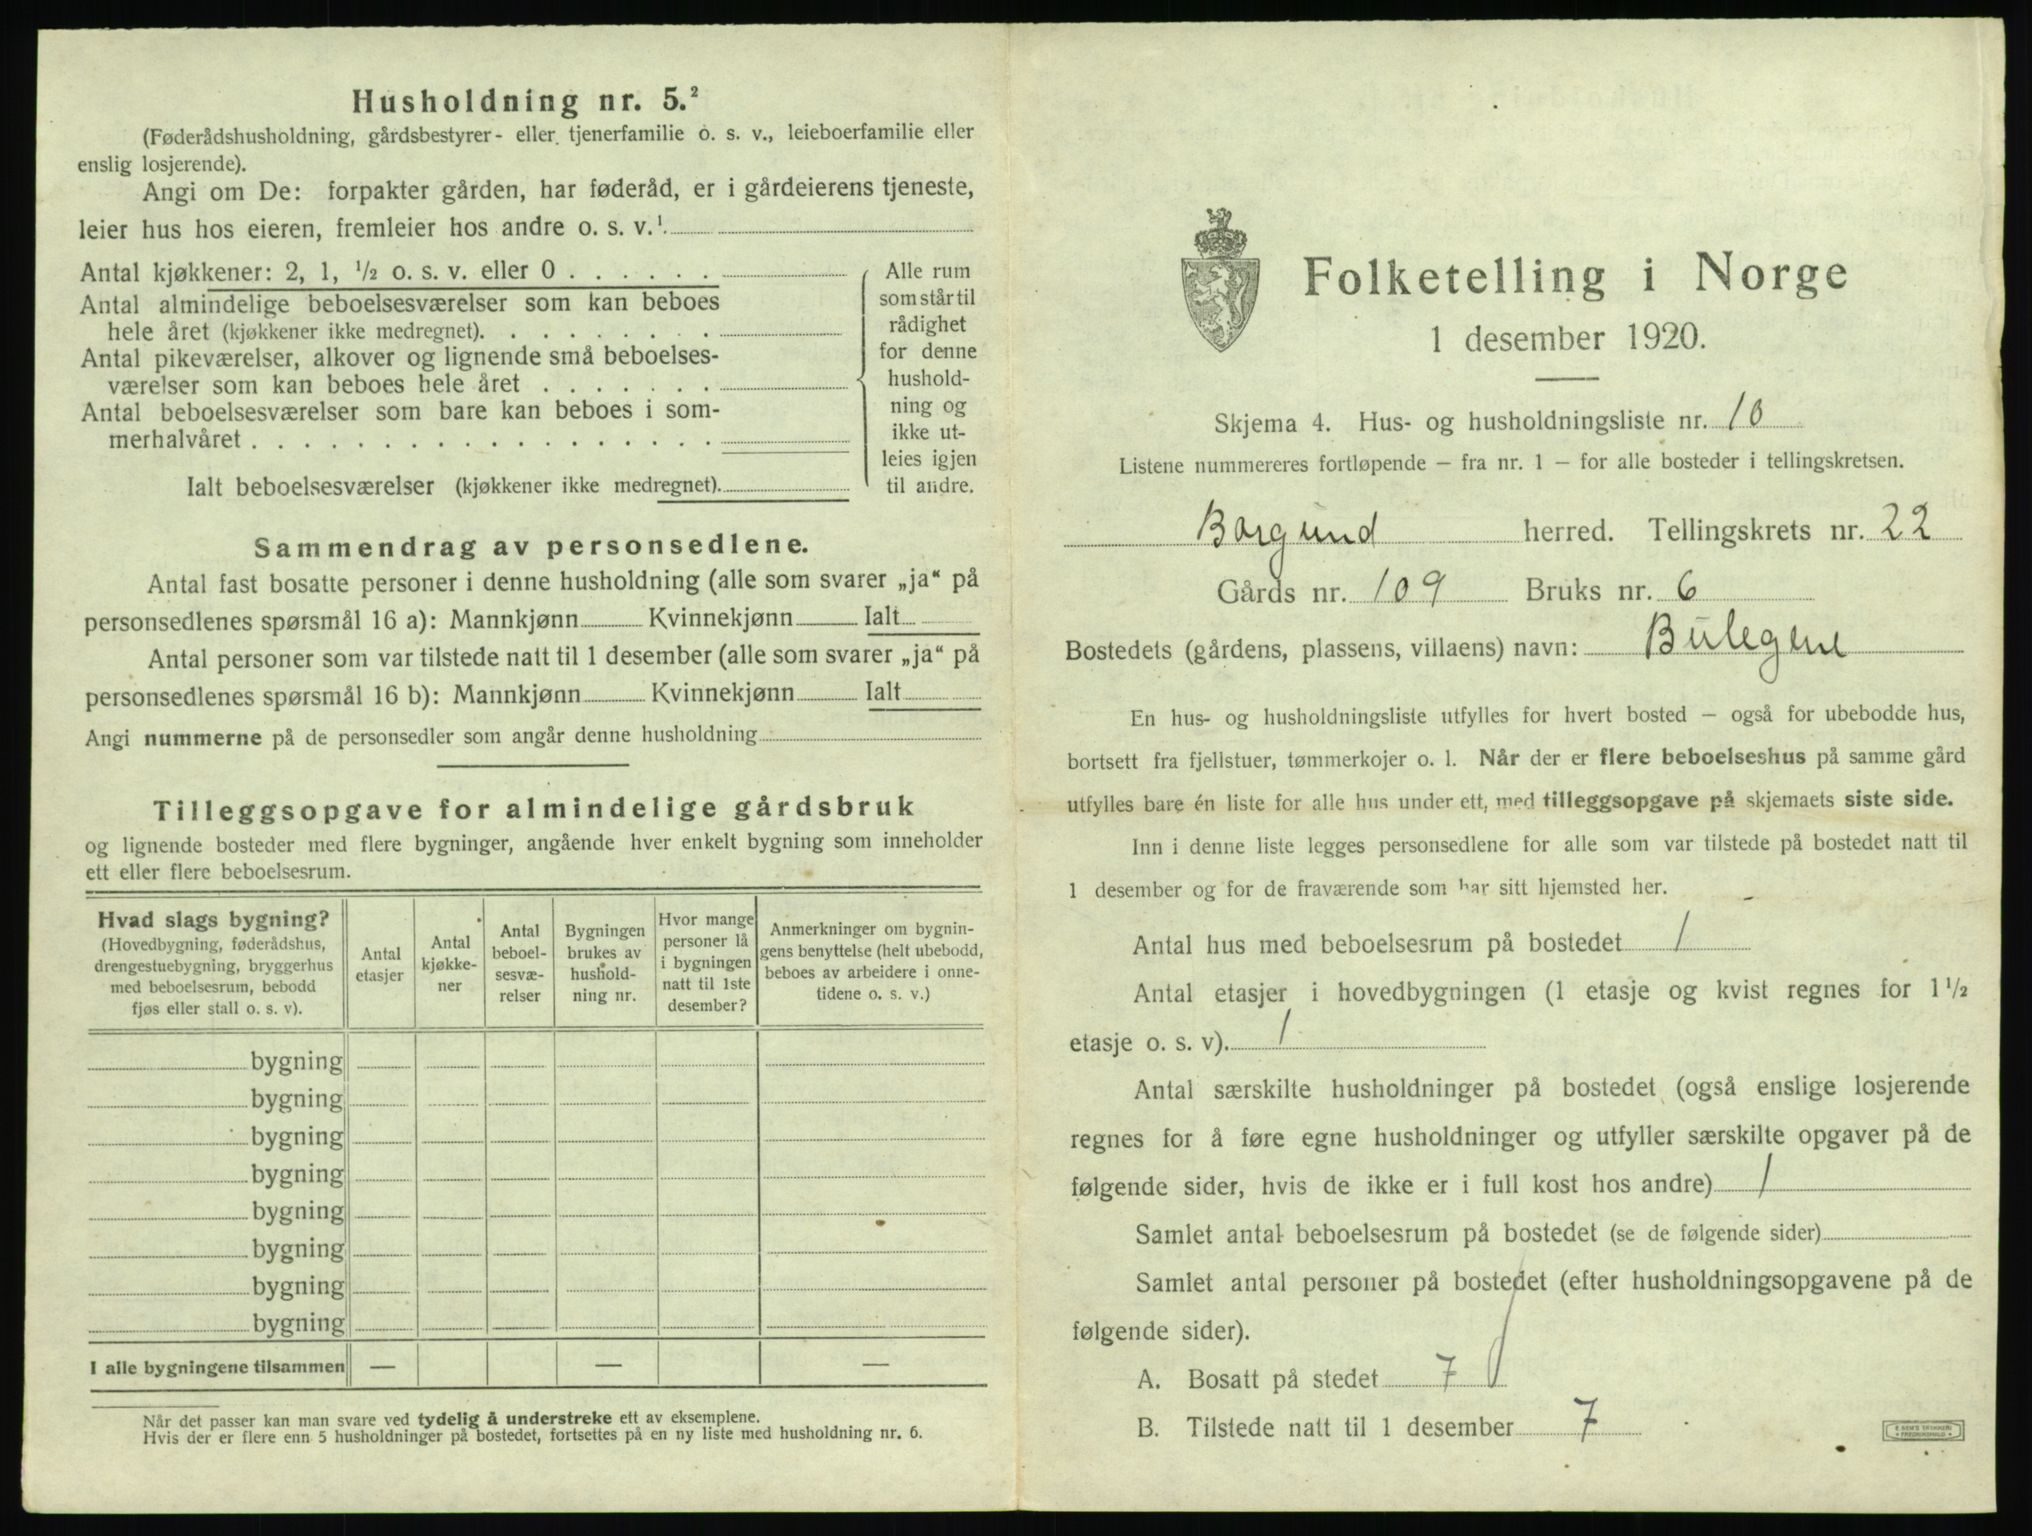 Husholdning nr. 5.²
(Føderådshusholdning, gårdsbestyrer- eller tjenerfamilie o. s. v., leieboerfamilie eller
enslig losjerende).
Angi om De: forpakter gården, har føderåd, er i gårdeierens tjeneste,
leier hus hos eieren, fremleier hos andre o. s. v.¹
Antal kjøkkener: 2, 1, ½ o. s. v. eller 0 . . . . . .
Antal almindelige beboelsesværelser som kan beboes
hele året (kjøkkener ikke medregnet). . . . . . . . .
Antal pikeværelser, alkover og lignende små beboelses-
værelser som kan beboes hele året . . . . . . .
Antal beboelsesværelser som bare kan beboes i som-
merhalvåret . . . . . . . . . . . . . . . . . .
Ialt beboelsesværelser (kjøkkener ikke medregnet).
Alle rum
som står til
rådighet
for denne
hushold-
ning og
ikke ut-
leies igjen
til andre.
Sammendrag av personsedlene.
Antal fast bosatte personer i denne husholdning (alle som svarer „ja“ på
personsedlenes spørsmål 16 a): Mannkjønn Kvinnekjønn Ialt
Antal personer som var tilstede natt til 1 desember (alle som svarer „ja“ på
personsedlenes spørsmål 16 b): Mannkjønn Kvinnekjønn Ialt
Angi nummerne på de personsedler som angår denne husholdning
Tilleggsopgave for almindelige gårdsbruk
og lignende bosteder med flere bygninger, angående hver enkelt bygning som inneholder
ett eller flere beboelsesrum.
Hvad slags bygning?
(Hovedbygning, føderådshus,
drengestuebygning, bryggerhus
med beboelsesrum, bebodd
fjøs eller stall o. s. v).
Antal
etasjer
Antal
kjøkke-
ner
Antal
beboel-
sesvæ-
relser
Bygningen
brukes av
hushold-
ning nr.
Hvor mange
personer lå
i bygningen
natt til 1ste
desember?
Anmerkninger om bygnin-
gens benyttelse (helt ubebodd,
beboes av arbeidere i onne-
tidene o. s. v.)
bygning
bygning
bygning
bygning
bygning
bygning
bygning
bygning
I alle bygningene tilsammen — — —
Når det passer kan man svare ved tydelig å understreke ett av eksemplene.
Hvis der er flere enn 5 husholdninger på bostedet, fortsettes på en ny liste med husholdning nr. 6.
Folketelling i Norge
1 desember 1920.
Skjema 4. Hus- og husholdningsliste nr. 10
Listene nummereres fortløpende – fra nr. 1 – for alle bosteder i tellingskretsen.
Borgund herred. Tellingskrets nr. 22
Gårds nr. 109 Bruks nr. 6
Bostedets (gårdens, plassens, villaens) navn: Bulegene
En hus- og husholdningsliste utfylles for hvert bosted – også for ubebodde hus,
bortsett fra fjellstuer, tømmerkojer o. l. Når der er flere beboelseshus på samme gård
utfylles bare én liste for alle hus under ett, med tilleggsopgave på skjemaets siste side.
Inn i denne liste legges personsedlene for alle som var tilstede på bostedet natt til
1 desember og for de fraværende som har sitt hjemsted her.
Antal hus med beboelsesrum på bostedet 1
Antal etasjer i hovedbygningen (1 etasje og kvist regnes for 1½
etasje o. s. v). 1
Antal særskilte husholdninger på bostedet (også enslige losjerende
regnes for å føre egne husholdninger og utfyller særskilte opgaver på de
følgende sider, hvis de ikke er i full kost hos andre) 1
Samlet antal beboelsesrum på bostedet (se de følgende sider)
Samlet antal personer på bostedet (efter husholdningsopgavene på de
følgende sider).
A. Bosatt på stedet 7
B. Tilstede natt til 1 desember 7